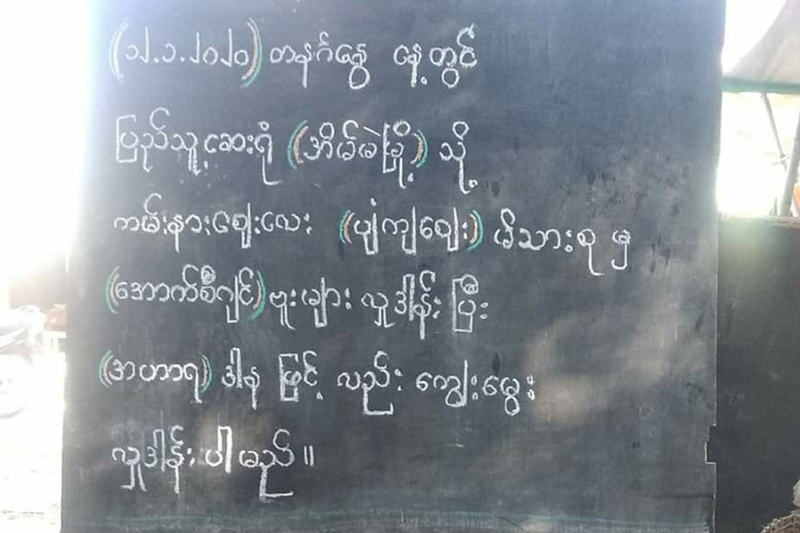 (၁၂.၁.၂၀၂၀) တနင်္ဂနွေ နေ့တွင်
ပြည်သူ့ဆေးရုံ (အိမ်မဲမြို့) သို့
ကမ်းနားဈေးလေး (ပျံကျဈေး) မိသားစု မှ
(အောက်စီဂျင်) ဗူးများ လှူဒါန်း ပြီး
(အဟာရ) ဒါန ဖြင့် လည်း ကျွေးမွေး
လှူဒါန်း ပါ မည်။